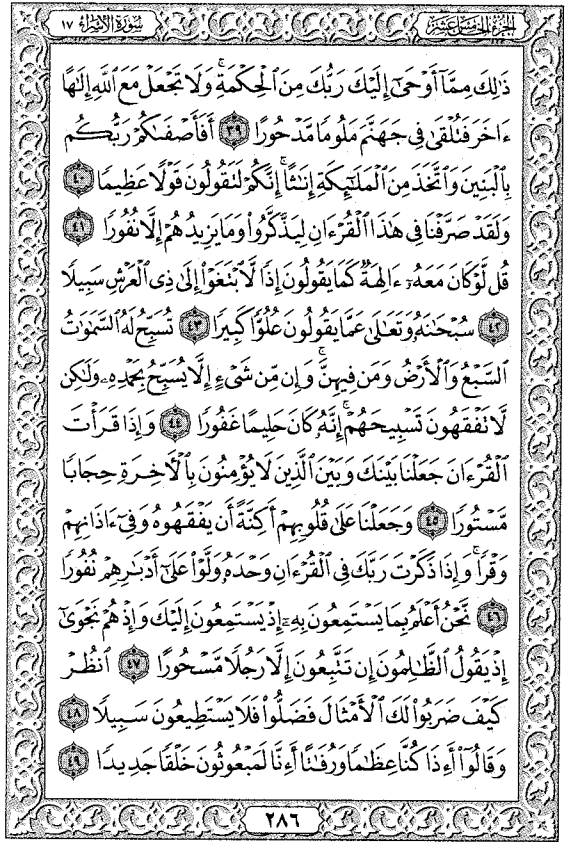 الجزء الخامس عشر
سورة الإسراء ١٧
ذَٰلِكَ مِمَّآ أَوْحَىٰٓ إِلَيْكَ رَبُّكَ مِنَ ٱلْحِكْمَةِۗ وَلَا تَجْعَلْ مَعَ ٱللَّهِ إِلَٰهًا
ءَاخَرَ فَتُلْقَىٰ فِى جَهَنَّمَ مَلُومًا مَّدْحُورًا ٣٩ أَفَأَصْفَىٰكُمْ رَبُّكُم
بِٱلْبَنِينَ وَٱتَّخَذَ مِنَ ٱلْمَلَٰٓئِكَةِ إِنَٰثًاۚ إِنَّكُمْ لَتَقُولُونَ قَوْلًا عَظِيمًا ٤٠
وَلَقَدْ صَرَّفْنَا فِى هَٰذَا ٱلْقُرْءَانِ لِيَذَّكَّرُوا۟ وَمَا يَزِيدُهُمْ إِلَّا نُفُورًا ٤١
قُل لَّوْ كَانَ مَعَهُۥٓ ءَالِهَةٌ كَمَا يَقُولُونَ إِذًا لَّٱبْتَغَوْا۟ إِلَىٰ ذِى ٱلْعَرْشِ سَبِيلًا
٤٢ سُبْحَٰنَهُۥ وَتَعَٰلَىٰ عَمَّا يَقُولُونَ عُلُوًّا كَبِيرًا ٤٣ تُسَبِّحُ لَهُ ٱلسَّمَٰوَٰتُ
ٱلسَّبْعُ وَٱلْأَرْضُ وَمَن فِيهِنَّۚ وَإِن مِّن شَىْءٍ إِلَّا يُسَبِّحُ بِحَمْدِهِۦ وَلَٰكِن
لَّا تَفْقَهُونَ تَسْبِيحَهُمْۗ إِنَّهُۥ كَانَ حَلِيمًا غَفُورًا ٤٤ وَإِذَا قَرَأْتَ
ٱلْقُرْءَانَ جَعَلْنَا بَيْنَكَ وَبَيْنَ ٱلَّذِينَ لَا يُؤْمِنُونَ بِٱلْأَخِرَةِ حِجَابًا
مَّسْتُورًا ٤٥ وَجَعَلْنَا عَلَىٰ قُلُوبِهِمْ أَكِنَّةً أَن يَفْقَهُوهُ وَفِىٓ ءَاذَانِهِمْ
وَقْرًاۚ وَإِذَا ذَكَرْتَ رَبَّكَ فِى ٱلْقُرْءَانِ وَحْدَهُۥ وَلَّوْا۟ عَلَىٰٓ أَدْبَٰرِهِمْ نُفُورًا
٤٦ نَّحْنُ أَعْلَمُ بِمَا يَسْتَمِعُونَ بِهِۦٓ إِذْ يَسْتَمِعُونَ إِلَيْكَ وَإِذْ هُمْ نَجْوَىٰٓ
إِذْ يَقُولُ ٱلظَّٰلِمُونَ إِن تَتَّبِعُونَ إِلَّا رَجُلًا مَّسْحُورًا ٤٧ ٱنظُرْ
كَيْفَ ضَرَبُوا۟ لَكَ ٱلْأَمْثَالَ فَضَلُّوا۟ فَلَا يَسْتَطِيعُونَ سَبِيلًا ٤٨
وَقَالُوٓا۟ أَءِذَا كُنَّا عِظَٰمًا وَرُفَٰتًا أَءِنَّا لَمَبْعُوثُونَ خَلْقًا جَدِيدًا ٤٩
٢٨٦